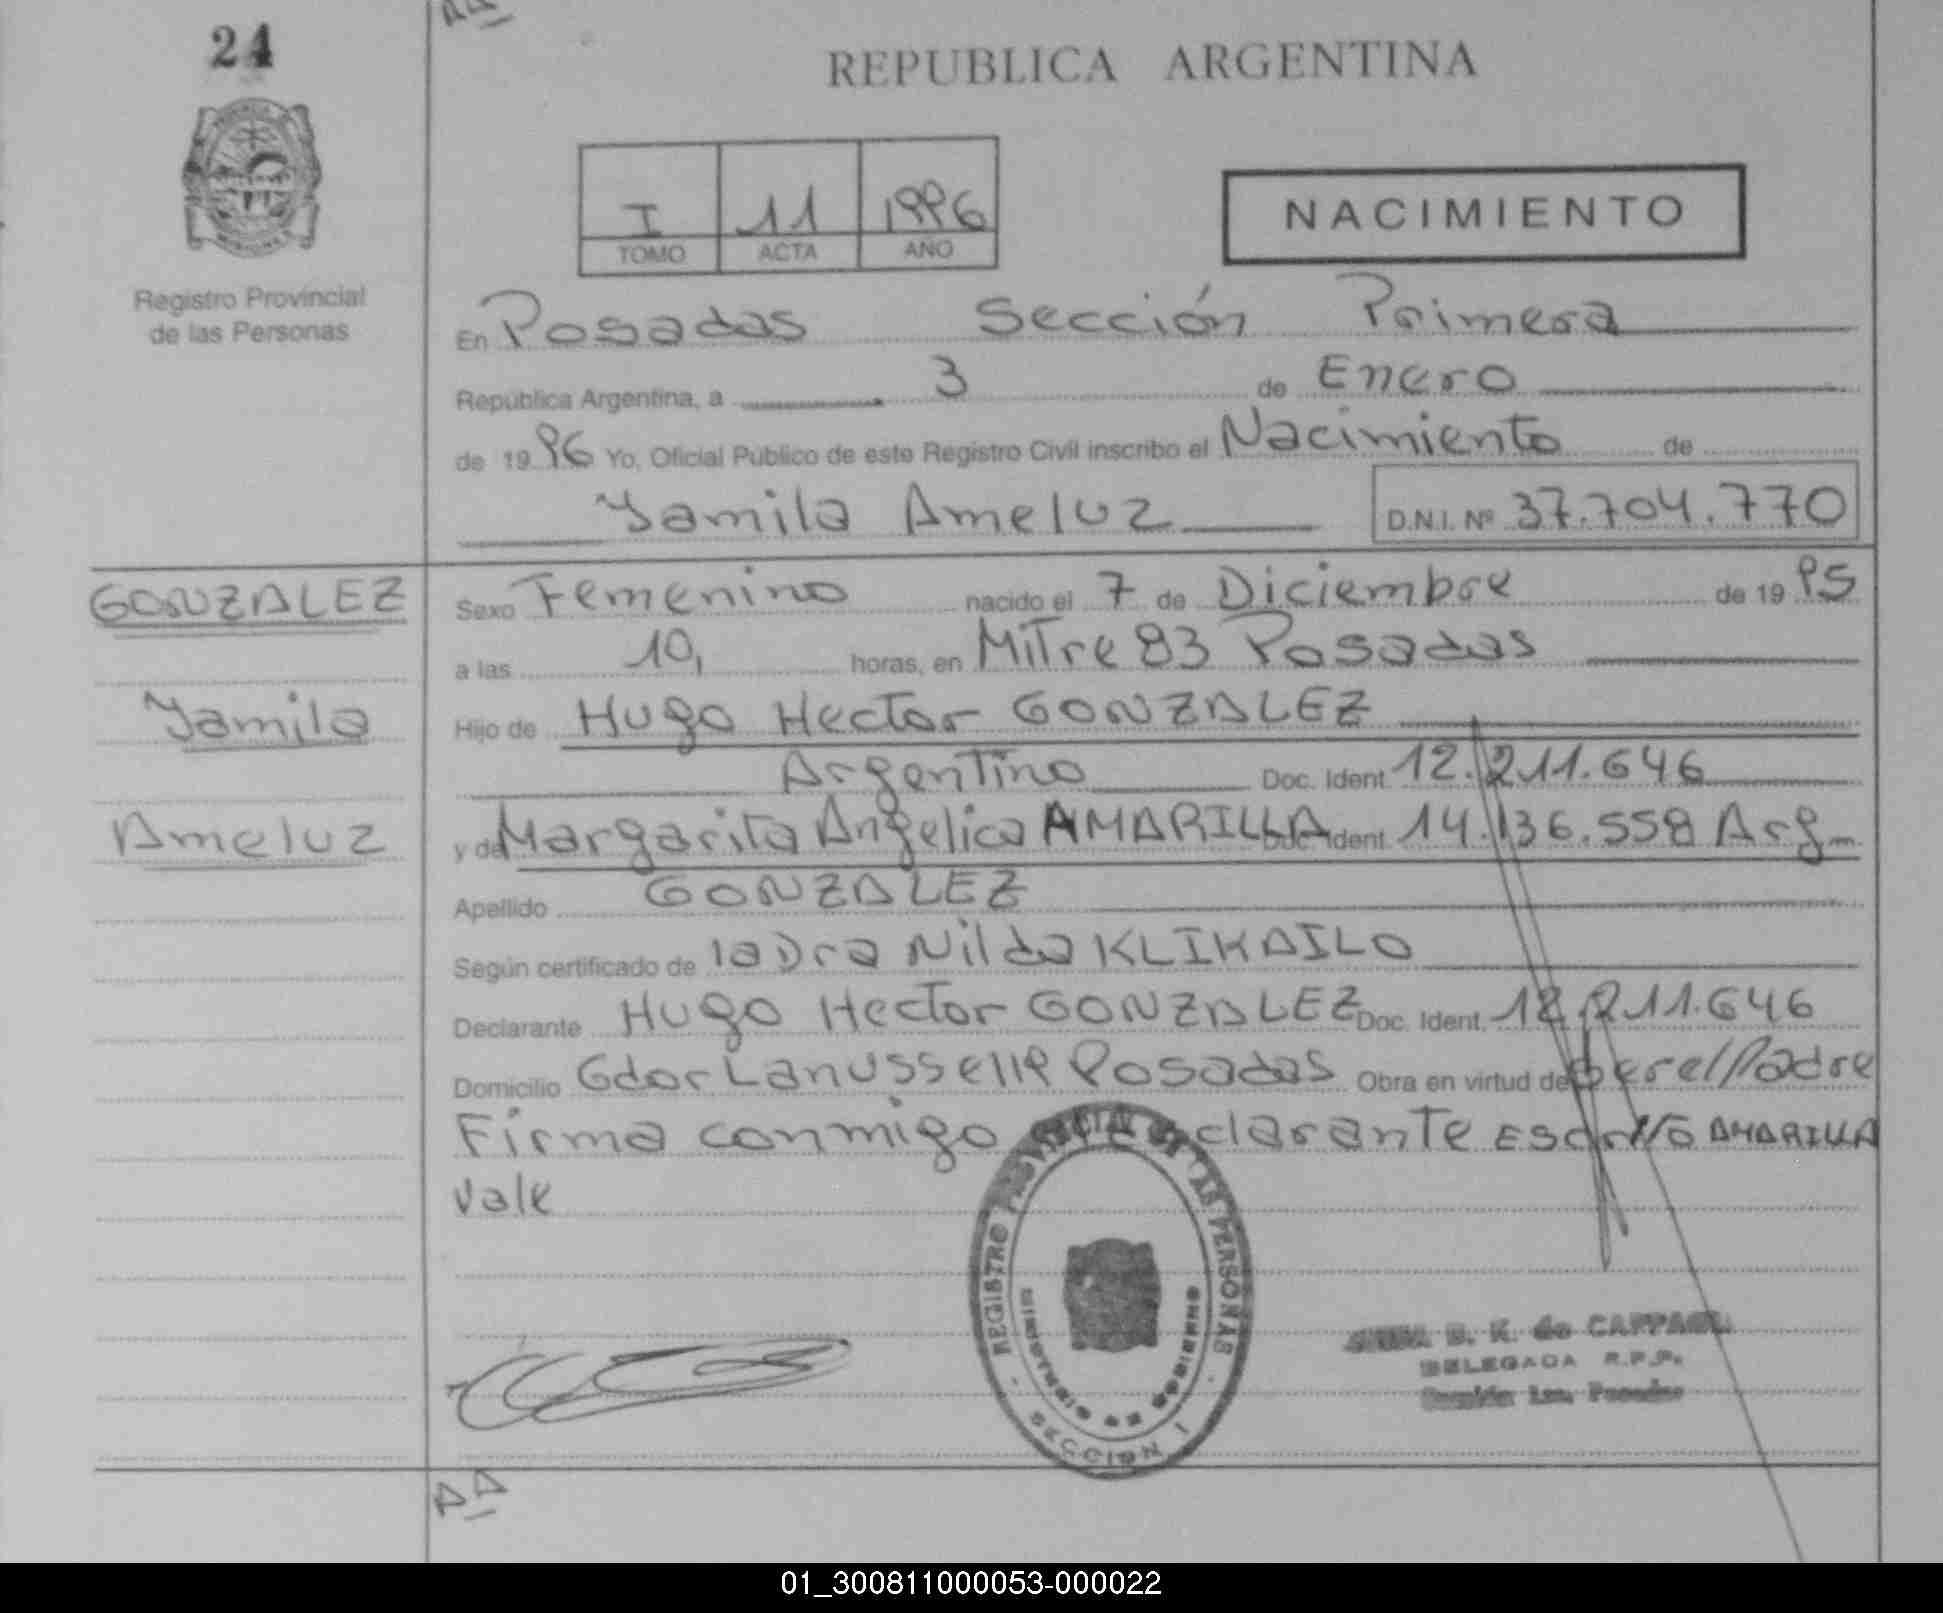 24
REPUBLICA ARGENTINA
I 11 1996
TOMO ACTA AÑO
NACIMIENTO
Registro Provincial
de las Personas
En Posadas Sección Primera
República Argentina, a 3 de Enero
de 1996 Yo, Oficial Público de este Registro Civil inscribo el Nacimiento de
Yamila Ameluz D.N.I. Nº 37.704.770
GONZALEZ
Yamila
Ameluz
Sexo Femenino nacido el 7 de Diciembre de 1995
a las 10, horas, en Mitre 83 Posadas
Hijo de Hugo Hector GONZALEZ
Argentino Doc. Ident. 12.211.646
y de Margarita Angelica AMARILLA Doc. Ident. 14.136.558 Arg.
Apellido GONZALEZ
Según certificado de la Dra Nilda KLIKAILO
Declarante Hugo Hector GONZALEZ Doc. Ident. 12.211.646
Domicilio Gdor Lanusse Posadas Obra en virtud de ser el Padre
Firma conmigo declarante Esc AMARILLA
Vale
REGISTRO PROVINCIAL DE LAS PERSONAS
MINISTERIO DE GOBIERNO
SECCION I
B. K. de
DELEGADA R.P.P.
Sección 1ra. Posadas
01_300811000053-000022